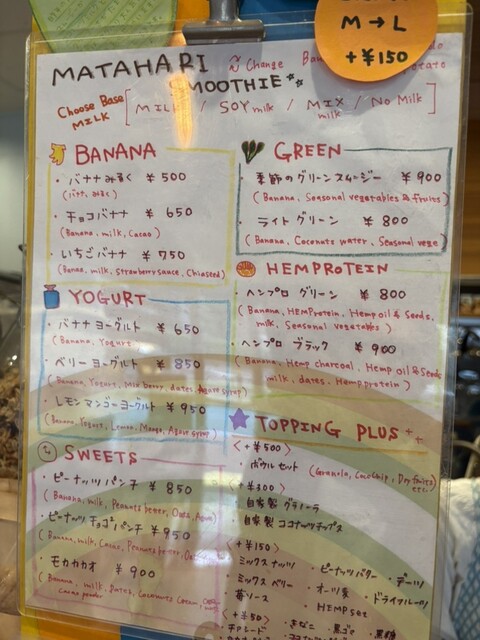 M→L
+¥150
MATAHARI SMOOTHIE
Change
Choose Base MILK [MILK / SOY milk / MIX milk / No Milk]
BANANA
・バナナみるく ¥500
(バナナ, みるく)
・チョコバナナ ¥650
(Banana, milk, Cacao)
・いちごバナナ ¥750
(Banana, milk, Strawberry sauce, Chiaseed)
YOGURT
・バナナヨーグルト ¥650
(Banana, Yogurt)
・ベリーヨーグルト ¥850
(Banana, Yogurt, berry, dates, Agave syrup)
・レモンマンゴーヨーグルト ¥950
(Banana, Yogurt, Lemon, Mango, Agave syrup)
SWEETS
・ピーナッツパンチ ¥850
(Banana, milk, Peanuts beter, Oats,
・ピーナッツチョコパンチ ¥950
(Banana, milk, Cacao, Peanuts beter,
・モカカカオ ¥900
(Banana, milk, Dates, Coconuts Cream,
cacao powder
GREEN
季節のグリーンスムージー ¥900
(Banana, Seasonal vegetables & fruits)
・ライトグリーン ¥800
(Banana, Coconuts water, Seasonal vege)
HEMPROTEIN
・ヘンプロ グリーン ¥800
(Banana, HEMProtein, Hemp oil & Seeds,
milk, Seasonal vegetables)
・ヘンプロ ブラック ¥900
(Banana, Hemp charcoal, Hemp oil & Seeds
milk, dates, Hemp protein)
TOPPING PLUS
<+¥500>
・ボウルセット (Granola, Cacochip, Dry fruits etc.)
<+¥300>
・自家製 グラノーラ
・自家製 ココナッツチップス
<+¥150>
・ミックスナッツ ・ピーナッツバター ・デーツ
・ミックスベリー ・オーツ麦 ・ドライフルーツ
・苺ソース ・HEMP set
<+¥50>
・チアシード ・きなこ ・黒ゴマ ・黒糖